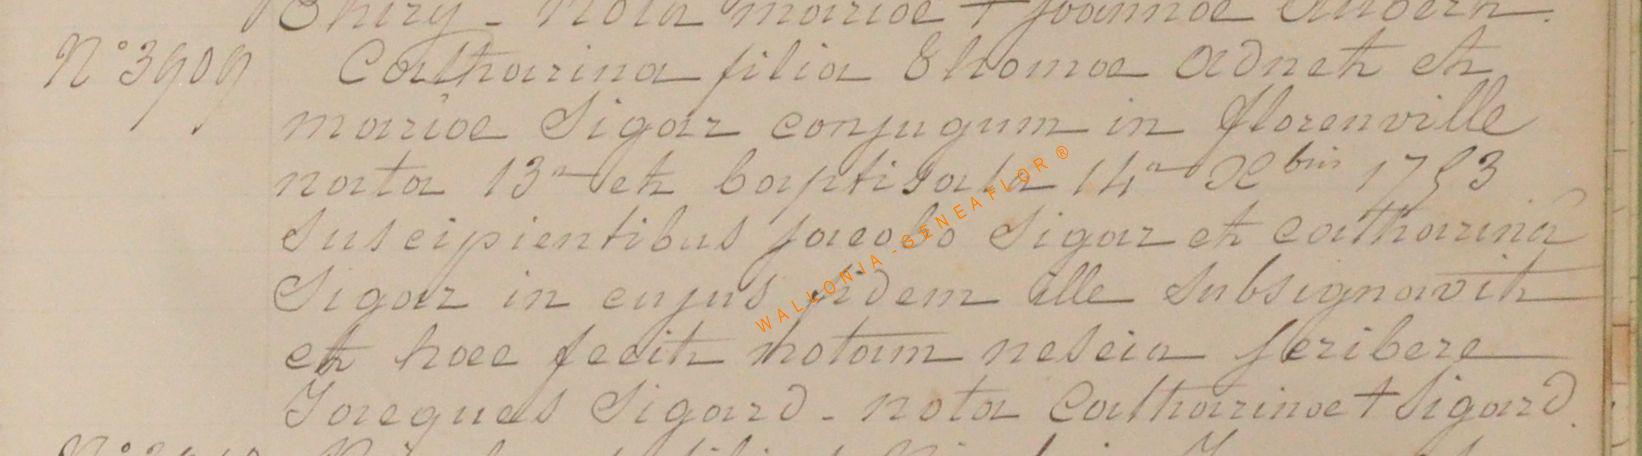 Thiry - Nota mariae + Joannae Aubert.
N° 3909 Catharina filia Thomae Adnet et
mariae Sigar conjugum in florenville
nata 13a et baptisata 14a Xbris 1753
suscipientibus jacobo Sigar et catharina
Sigar in cujus fidem ille subsignavit
et haec fecit notam nescia scribere
Jacques Sigard - nota Catharinae + Sigard.
WALLONIA - GENEAFLOR ®